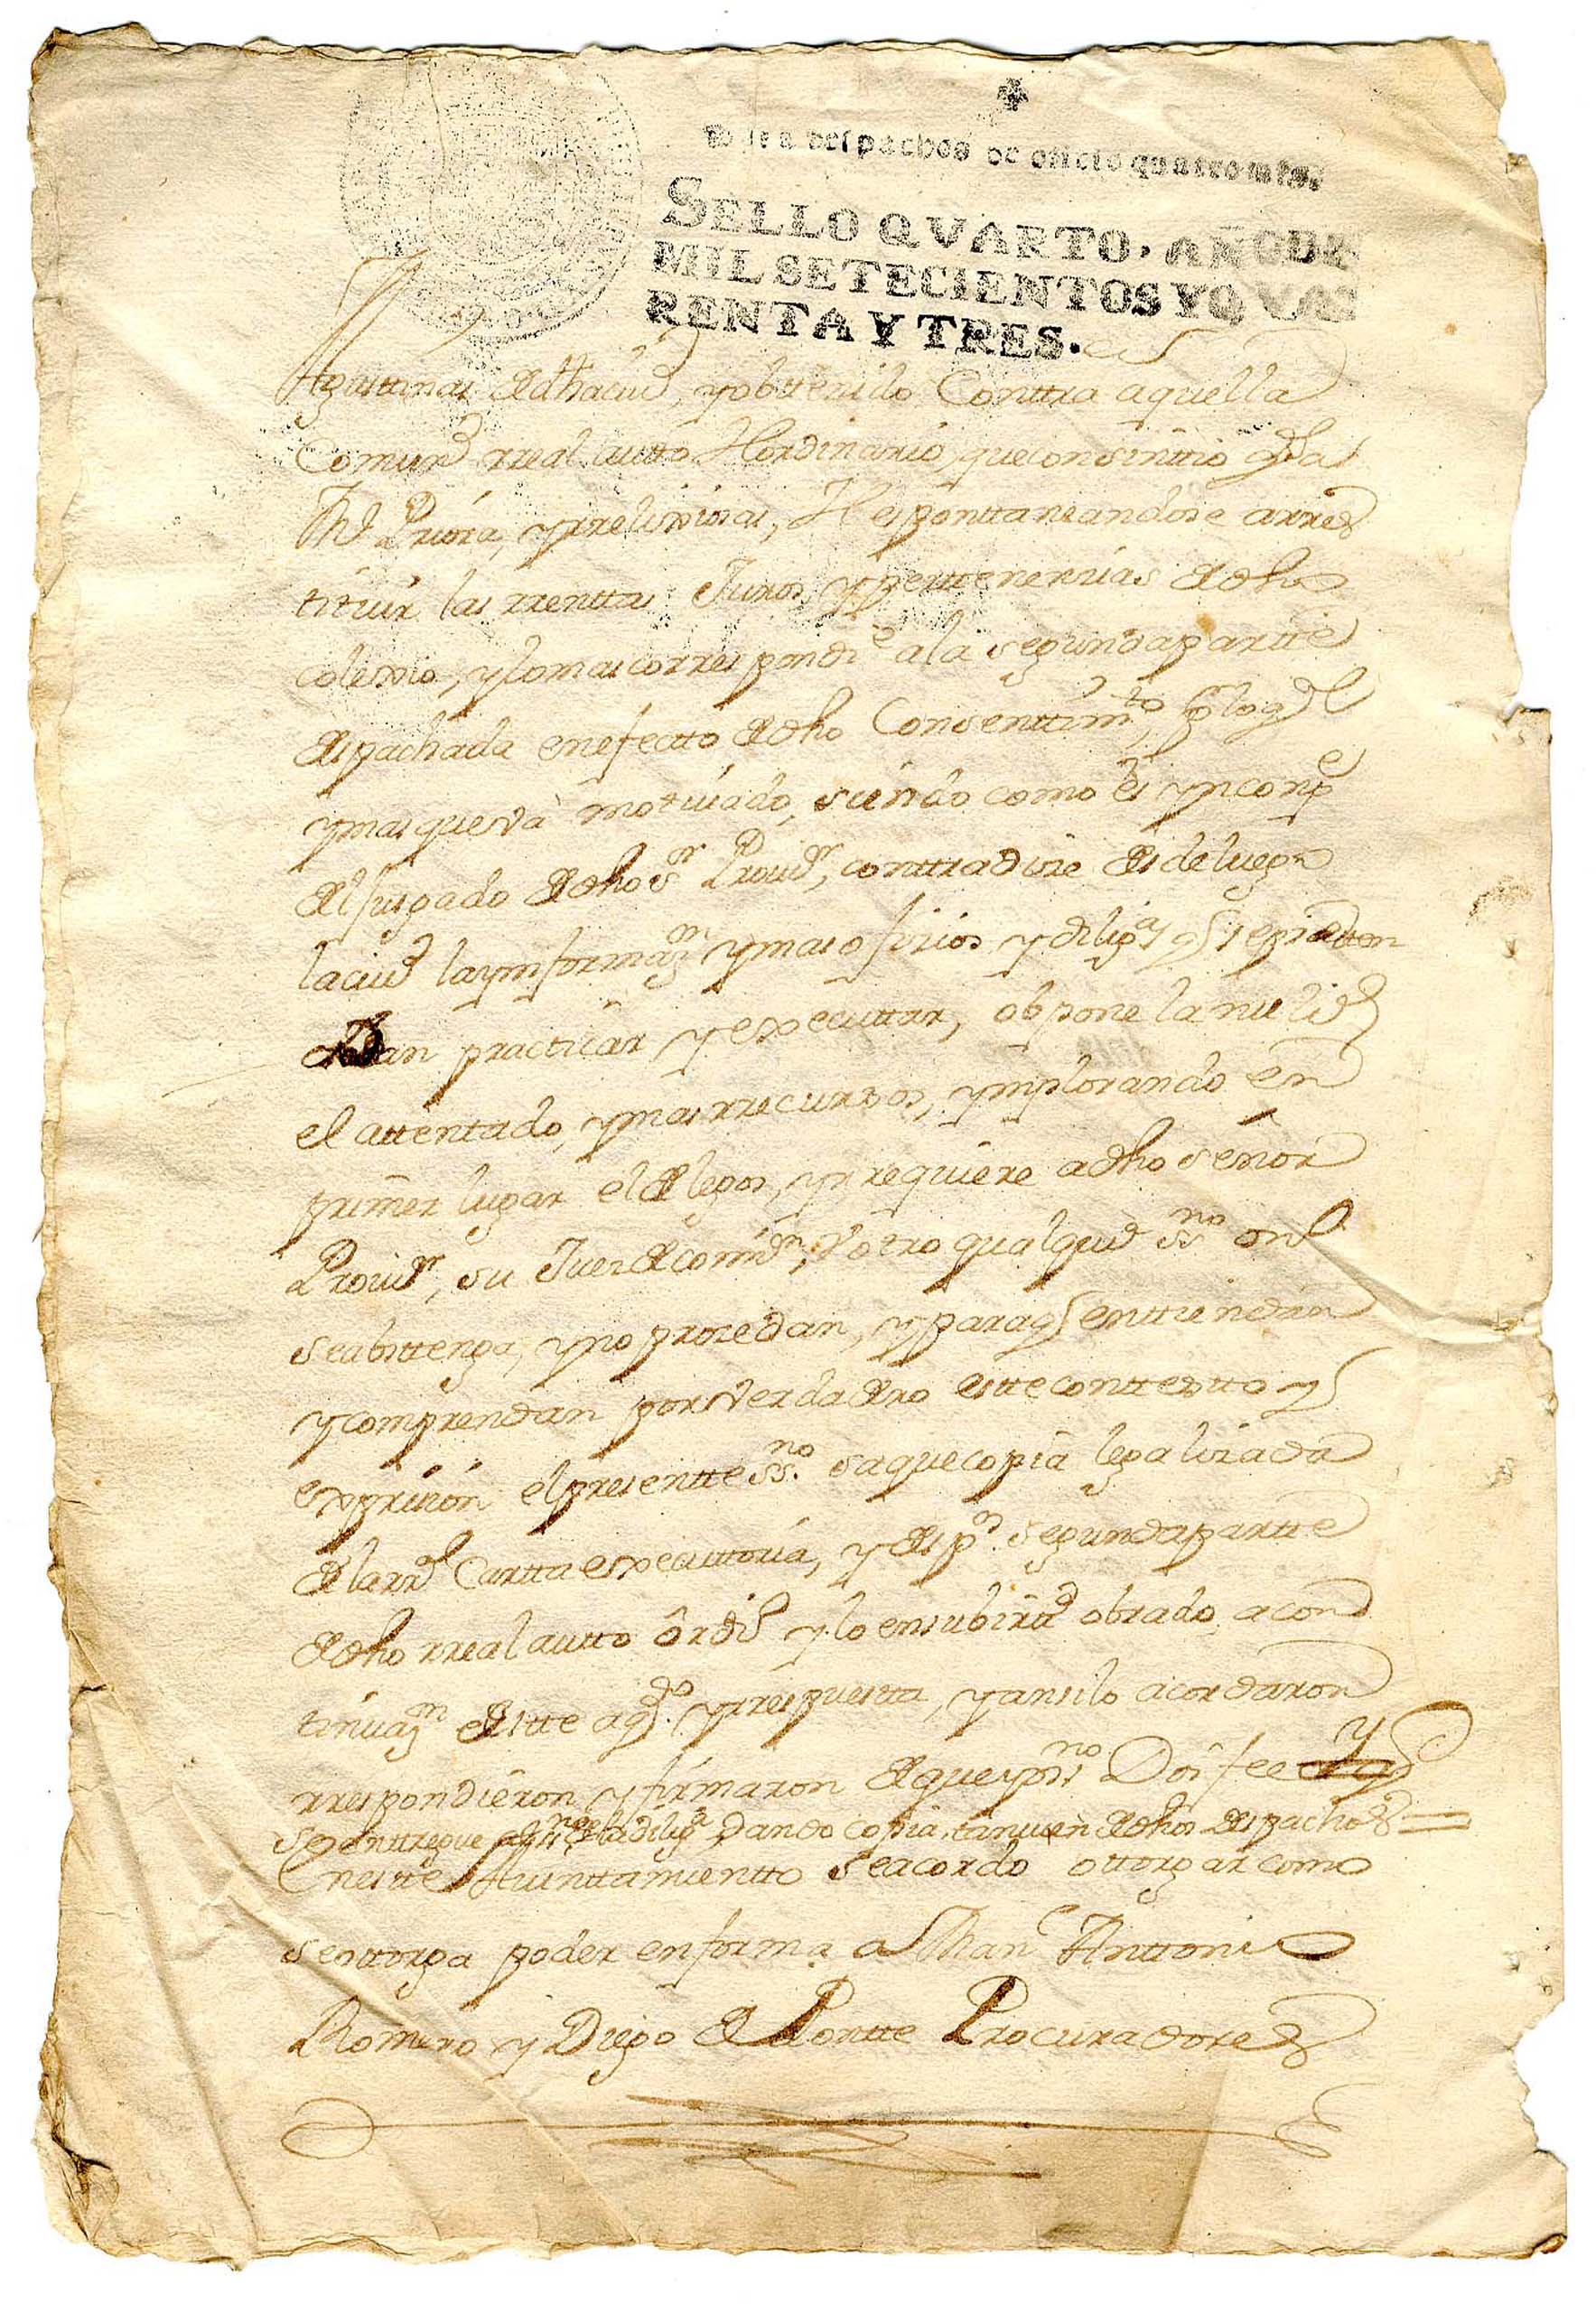 despachos de oficio quatro mrs.
SELLO QVARTO, AÑO DE
MIL SETECIENTOS Y QVA
RENTA Y TRES.
Agustinas de dha ciud, y obttenido Conttra aquella
Comund rreal autto Hordinario, que consinttio dha
Priora, y rrelixiosas, Hesponttaneandose a rres
tituir las rrenttas Juros, y perttenencias de dho
colexio, y lo mas correspondte a la segunda partte
despachada en efecto de dho Consenttimto, por lo ql
y mas que va motivado, siendo como es yncompe
del jusgado de dho Sr Provisr, conttradice desde luego
la ciud la ymformazn y mas oficios y diligas q se
practicar y executtar, obpone la nulid
el attentado, y mas rrecursos, ymplorando en
primer lugar el de legos, y rrequiere a dho señor
Provisr, su Juez de comisn, v otro qualquier SSno
se absttenga, y no prozedan, y para q enttiendan
y comprendan por verdadero estte conttextto y
expresion el presentte SSno saque copia legalizada
de la rrl Cartta executtoria, y desp segunda partte
de dho rreal autto ordio y lo en su birtud obrado a con
tinuazn de estte y rrespuestta, y ansi lo acordaron
rrespondieron y firmaron de que yo ssno Doi fee y q
se enttregue la diliga dando copia tanvien de dhos despachos =
En estte Aiunttamientto se acordo ottorgar como
se ottorga poder en forma a Anttonio
Romero y Diego de Pontte Procuradores